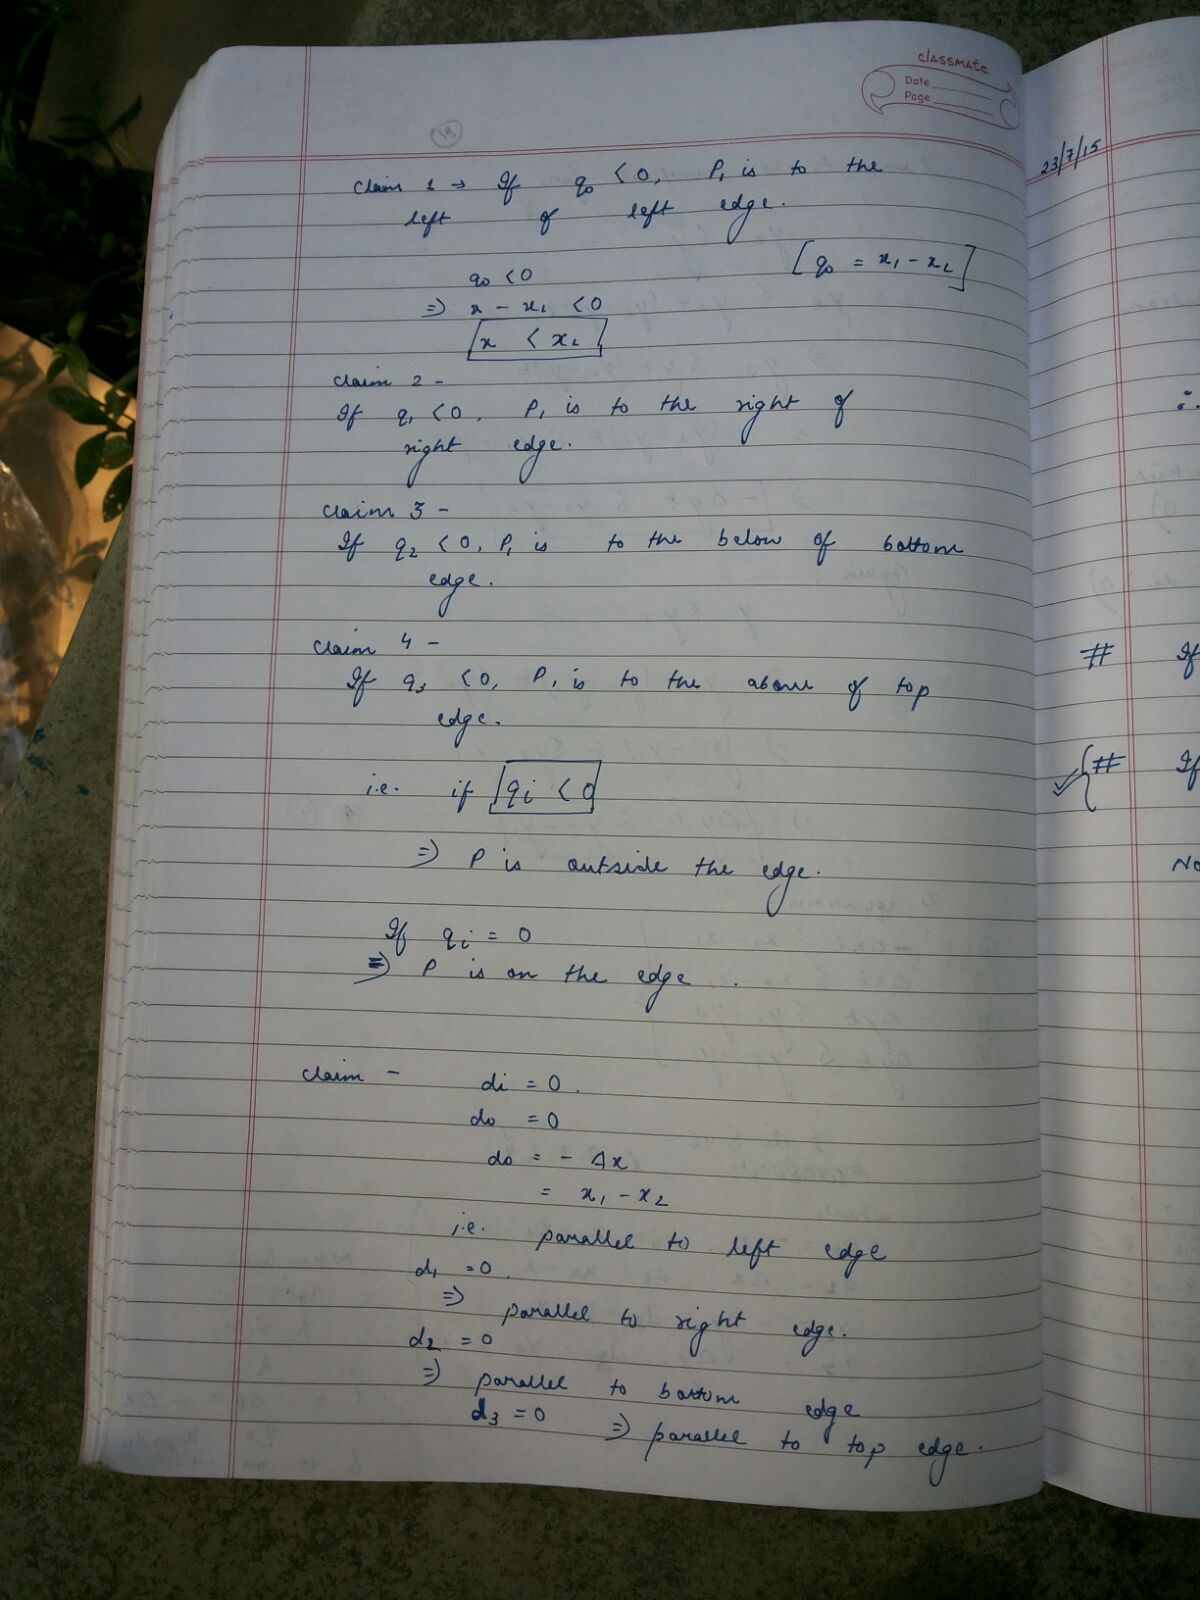 classmate
Date
Page
19
Claim 1 → If q0 < 0, P1 is to the
left of left edge.
q0 < 0 [q0 = x1 - xL]
⇒ x - xL < 0
x < xL
Claim 2 -
If q1 < 0, P1 is to the right of
right edge.
Claim 3 -
If q2 < 0, P1 is to the below of bottom
edge.
Claim 4 -
If q3 < 0, P1 is to the above of top
edge.
i.e. if qi < 0
⇒ P is outside the edge.
If qi = 0
⇒ P is on the edge.
Claim - di = 0.
d0 = 0
d0 = - Δx
= x1 - x2
i.e. parallel to left edge
d1 = 0.
⇒ parallel to right edge.
d2 = 0
⇒ parallel to bottom edge
d3 = 0 ⇒ parallel to top edge.
23/7/15
∴
# If
# If
No